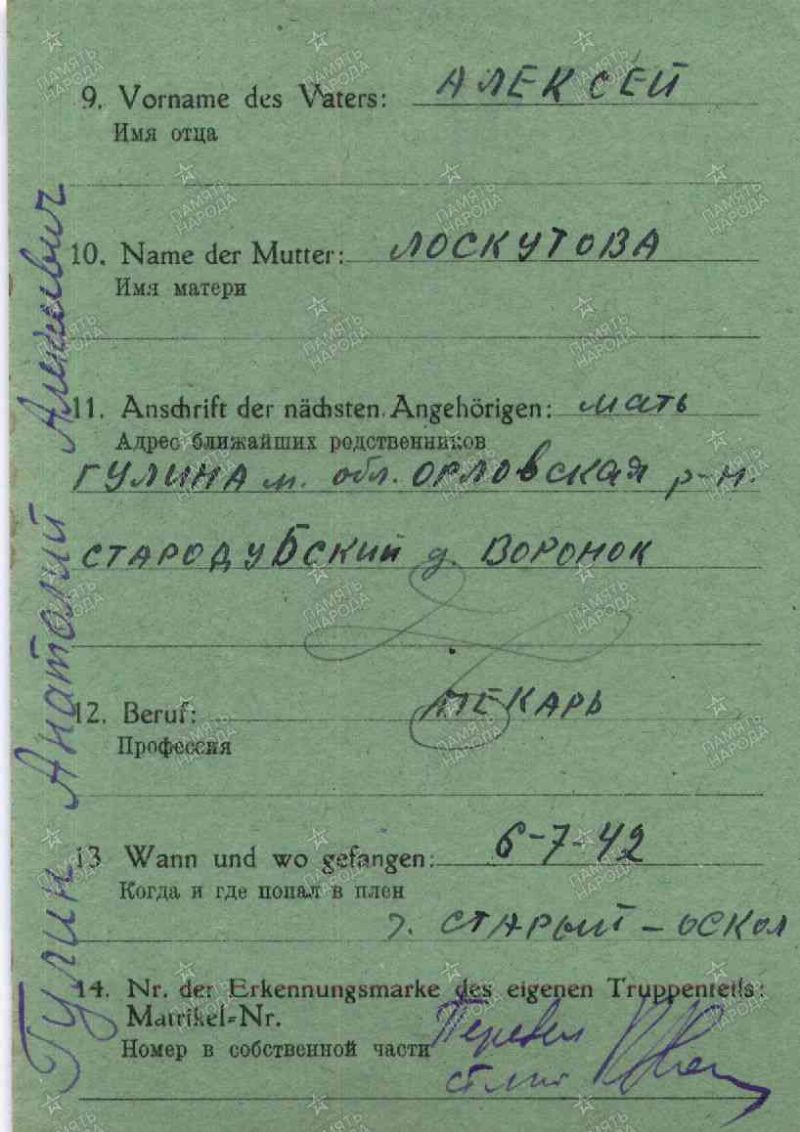 9. Vorname des Vaters: АЛЕКСЕЙ
Имя отца
10. Name der Mutter: ЛОСКУТОВА
Имя матери
11. Anschrift der nächsten Angehörigen: мать
Адрес ближайших родственников
ГУЛИНА м. обл. ОРЛОВСКАЯ р-н.
СТАРОДУБСКИЙ д. ВОРОНОК
12. Beruf: ПЕКАРЬ
Профессия
13 Wann und wo gefangen: 6-7-42
Когда и где попал в плен
г. СТАРЫЙ-ОСКОЛ
14. Nr. der Erkennungsmarke des eigenen Truppenteils:
Matrikel-Nr.
Номер в собственной части
Перевел
Гулин Анатолий
ПАМЯТЬ НАРОДА